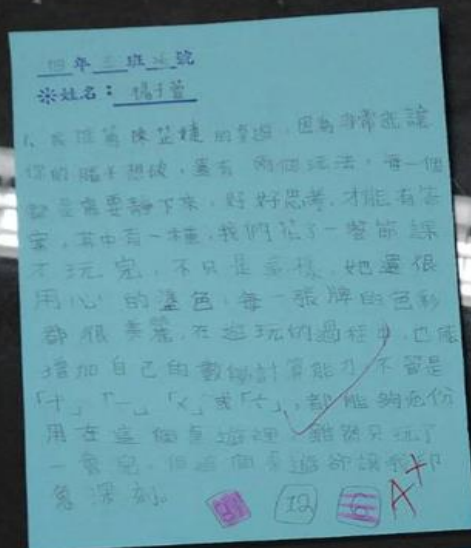 四年三班26號
※姓名：楊子萱
1、我推薦陳芷婕的桌遊，因為非常能讓
你的腦子想破，還有兩個玩法，每一個
都是需要靜下來，好好思考，才能有答
案，其中有一種，我們花了一整節課
才玩完，不只是這樣，她還很
用心的塗色，每一張牌的色彩
都很美麗，在遊玩的過程中，也能
增加自己的數學計算能力，不管是
「+」「-」「×」或「÷」，都能夠充份
用在這個桌遊裡，雖然只玩了
一會兒，但這個桌遊卻讓我印
象深刻。
12 6 A+